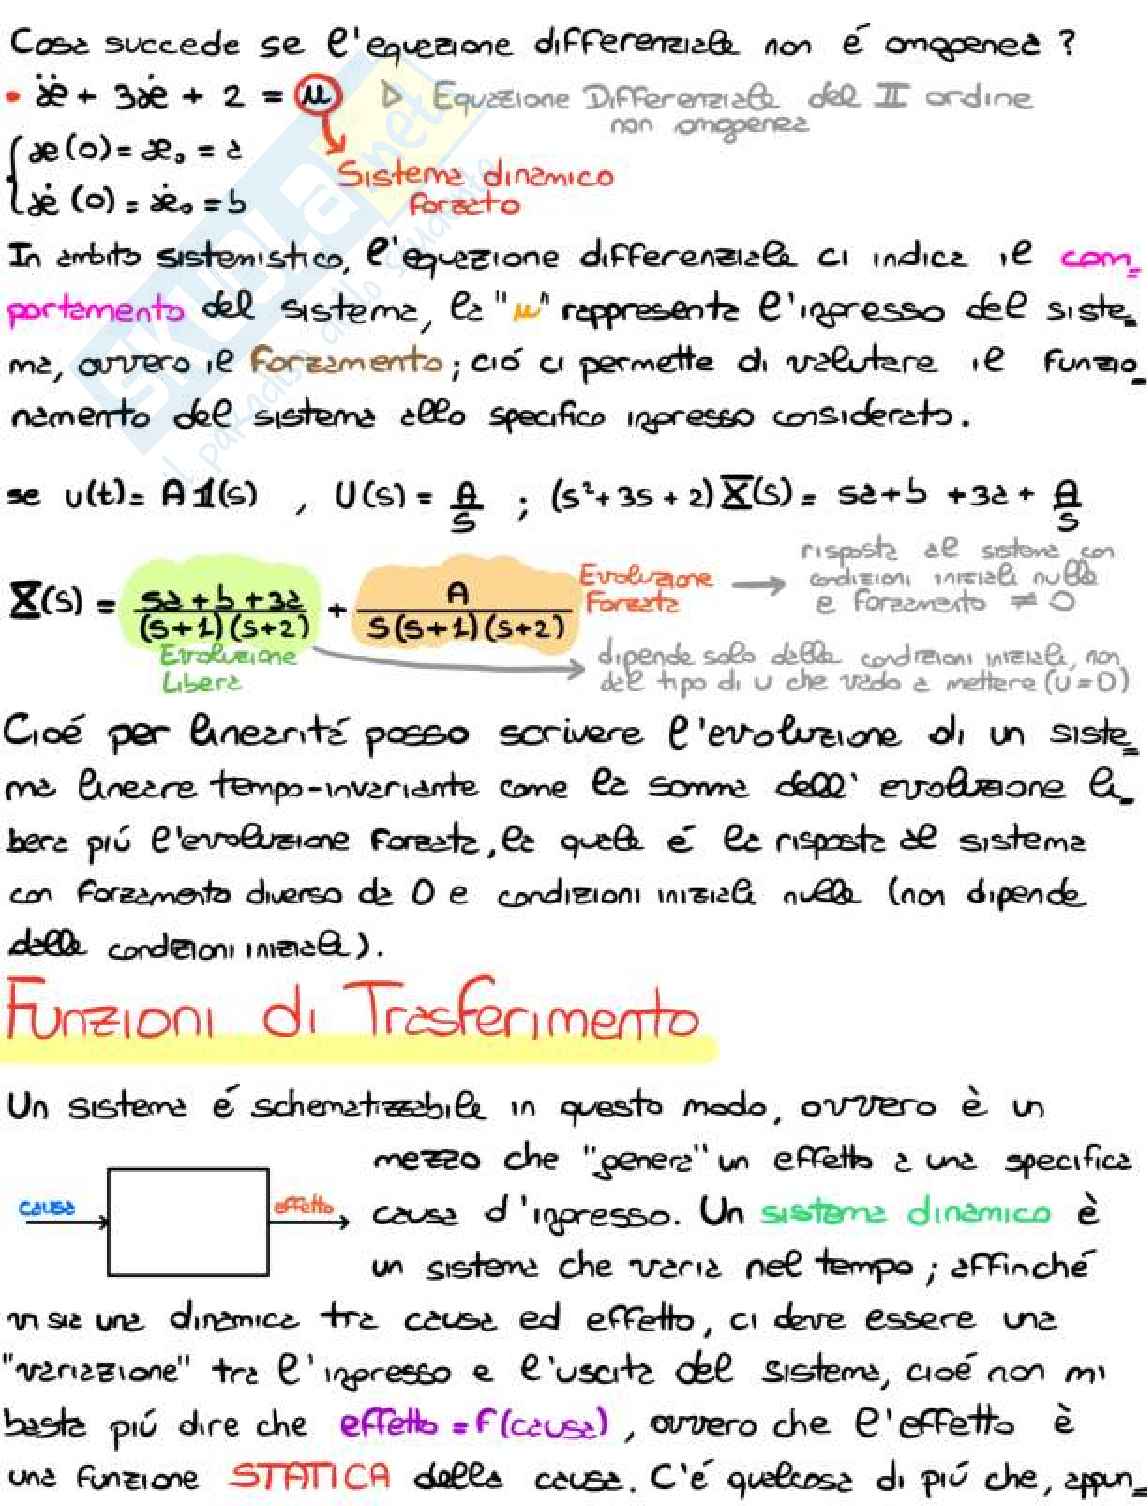 Cosa succede se l'equazione differenziale non é omogenea?
• ẍ + 3ẋ + 2 = u ▷ Equazione Differenziale del II ordine
non omogenea
x(0) = x₀ = a
ẋ(0) = ẋ₀ = b
Sistema dinamico
forzato
In ambito sistemistico, l'equazione differenziale ci indica il com-
portamento del sistema, la "u" rappresenta l'ingresso del siste-
ma, ovvero il forzamento; ció ci permette di valutare il funzio-
namento del sistema allo specifico ingresso considerato.
se u(t) = A 1(s) , U(s) = A/s ; (s²+3s+2) X(s) = sa+b +3a + A/s
X(s) = (sa+b+3a)/((s+1)(s+2)) + A/(s(s+1)(s+2))
Evoluzione
Forzata
risposta al sistema con
condizioni iniziali nulle
e forzamento ≠ 0
Evoluzione
Libera
dipende solo dalle condizioni iniziali, non
dal tipo di u che vado a mettere (u=0)
Cioé per linearitá posso scrivere l'evoluzione di un siste-
ma lineare tempo-invariante come la somma dell'evoluzione li-
bera piú l'evoluzione forzata, la quale é la risposta al sistema
con forzamento diverso da 0 e condizioni iniziali nulle (non dipende
dalle condizioni iniziali).
Funzioni di Trasferimento
Un sistema é schematizzabile in questo modo, ovvero è un
mezzo che "genera" un effetto a una specifica
causa
effetto
causa d'ingresso. Un sistema dinamico è
un sistema che varia nel tempo; affinché
vi sia una dinamica tra causa ed effetto, ci deve essere una
"variazione" tra l'ingresso e l'uscita del sistema, cioé non mi
basta piú dire che effetto = f(causa), ovvero che l'effetto è
una funzione STATICA della causa. C'é qualcosa di piú che, appun-
SKUOLA.net
il paradiso dello studente